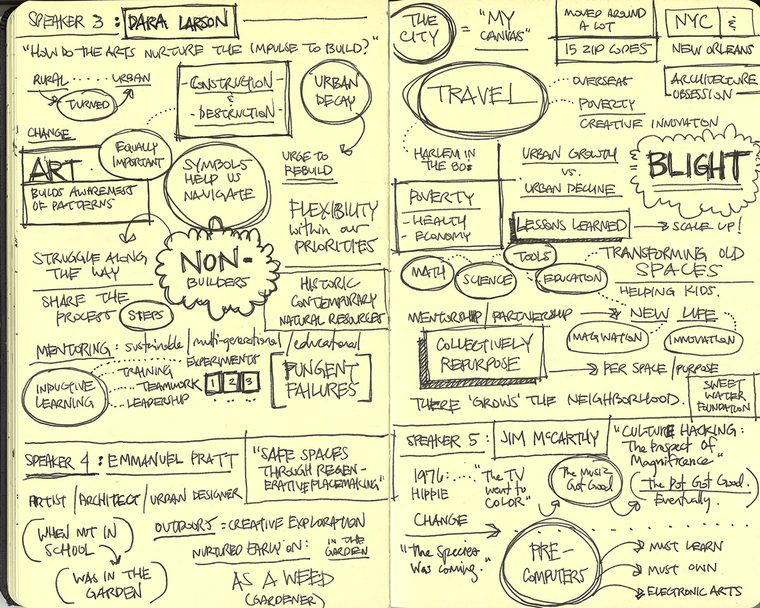 SPEAKER 3: DARA LARSON
"HOW DO THE ARTS NURTURE THE IMPULSE TO BUILD?"
RURAL
URBAN
TURNED
-CONSTRUCTION
&
-DESTRUCTION-
URBAN
DECAY
CHANGE
EQUALLY
IMPORTANT
ART
BUILDS AWARENESS
OF PATTERNS
SYMBOLS
HELP US
NAVIGATE
URGE TO
REBUILD
FLEXIBILITY
within our
PRIORITIES
NON-
BUILDERS
STRUGGLE ALONG
THE WAY
SHARE THE
PROCESS
STEPS
HISTORIC
CONTEMPORARY
NATURAL RESOURCES
MENTORING: sustainable/multi-generational/educational
INDUCTIVE
LEARNING
EXPERIMENTS
TRAINING
TEAMWORK
LEADERSHIP
1 2 3
PUNGENT
FAILURES
SPEAKER 4: EMMANUEL PRATT
"SAFE SPACES
THROUGH REGEN-
ERATIVE PLACEMAKING"
ARTIST/ARCHITECT/URBAN DESIGNER
(WHEN NOT IN
SCHOOL)
(WAS IN THE
GARDEN)
OUTDOORS = CREATIVE EXPLORATION
NURTURED EARLY ON: IN THE
GARDEN
AS A WEED
(GARDENER)
THE
CITY
= "MY
CANVAS"
MOVED AROUND
A LOT
15 ZIP CODES
NYC &
NEW ORLEANS
TRAVEL
OVERSEAS
POVERTY
CREATIVE INNOVATION
ARCHITECTURE
OBSESSION
HARLEM IN
THE 80s
URBAN GROWTH
VS.
URBAN DECLINE
= BLIGHT
POVERTY
-HEALTH
-ECONOMY
LESSONS LEARNED
SCALE UP!
TOOLS
MATH
SCIENCE
EDUCATION
TRANSFORMING OLD
SPACES
HELPING KIDS.
MENTORSHIP/PARTNERSHIP
NEW LIFE
IMAGINATION
INNOVATION
COLLECTIVELY
REPURPOSE
PER SPACE/PURPOSE
THERE 'GROWS' THE NEIGHBORHOOD.
SWEET
WATER
FOUNDATION
SPEAKER 5: JIM McCARTHY
"CULTURE HACKING:
The Prospect of
Magnificence"
1976:
HIPPIE
"The TV
went to
COLOR"
The Music
Got Good
(The Pot Got Good.
Eventually.)
CHANGE
"The Species
Was Coming."
PRE-
COMPUTERS
MUST LEARN
MUST OWN
ELECTRONIC ARTS